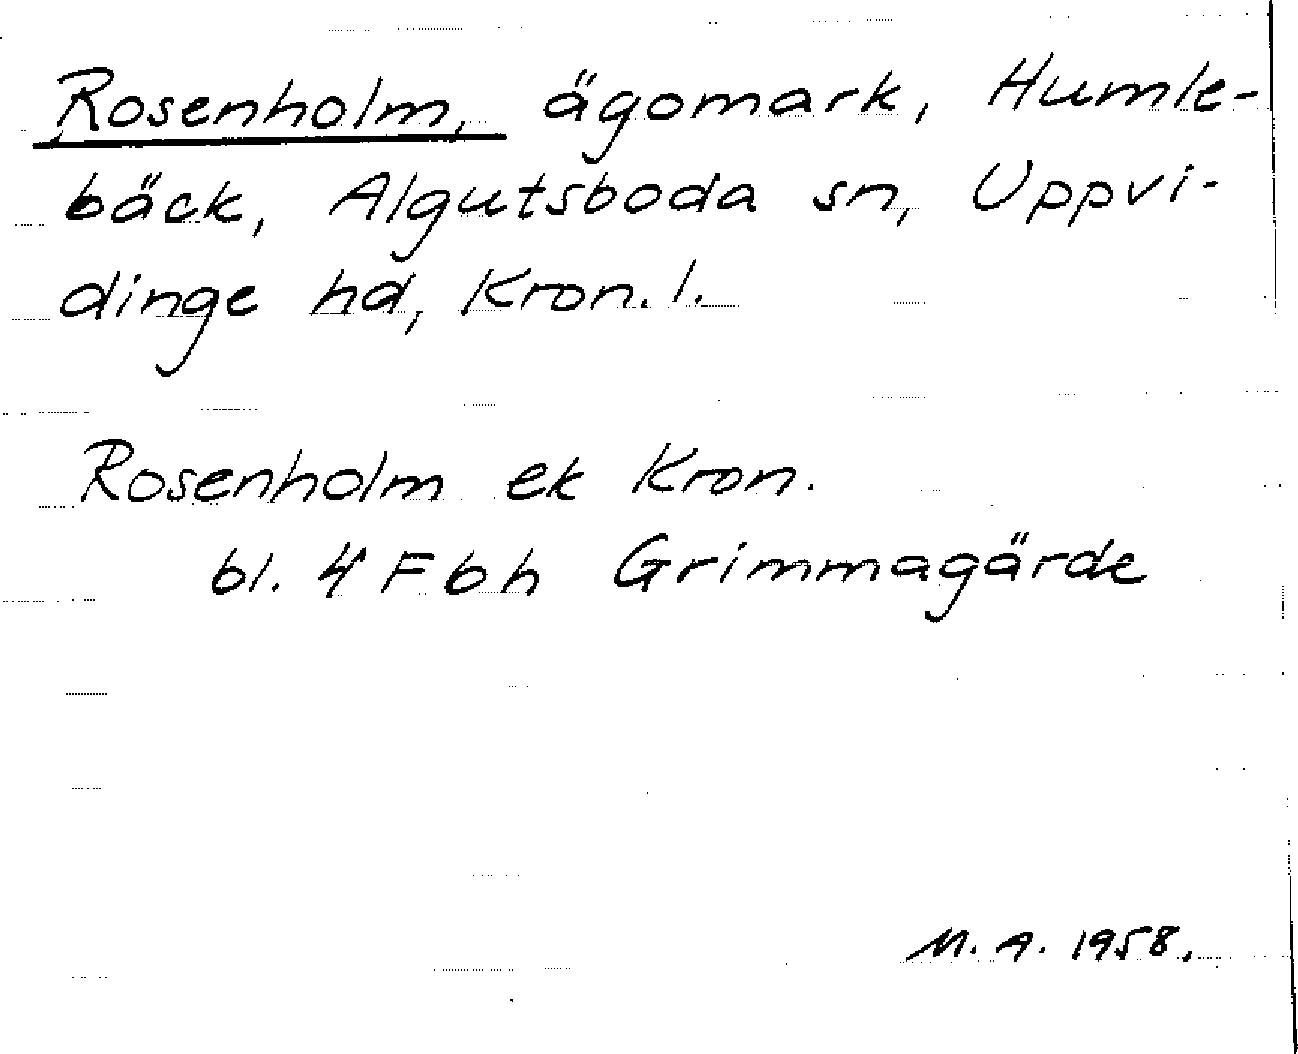 Rosenholm, ägomark, Humle-
bäck, Algutsboda sn, Uppvi-
dinge hd, Kron. l.
Rosenholm ek Kron.
bl. 4 F6h Grimmagärde
M. A. 1958.